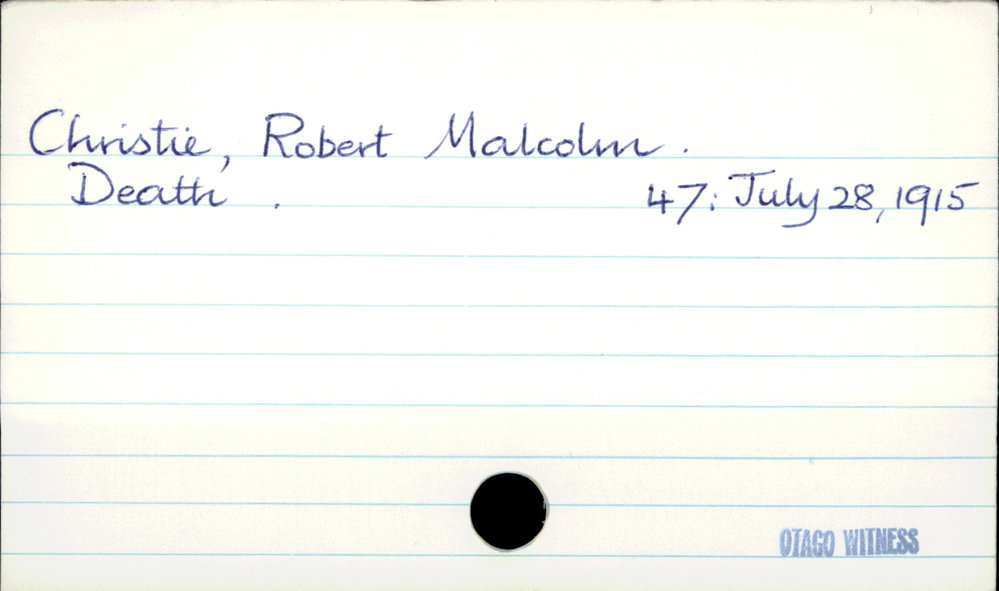 Christie, Robert Malcolm.
Death. 47: July 28, 1915
OTAGO WITNESS